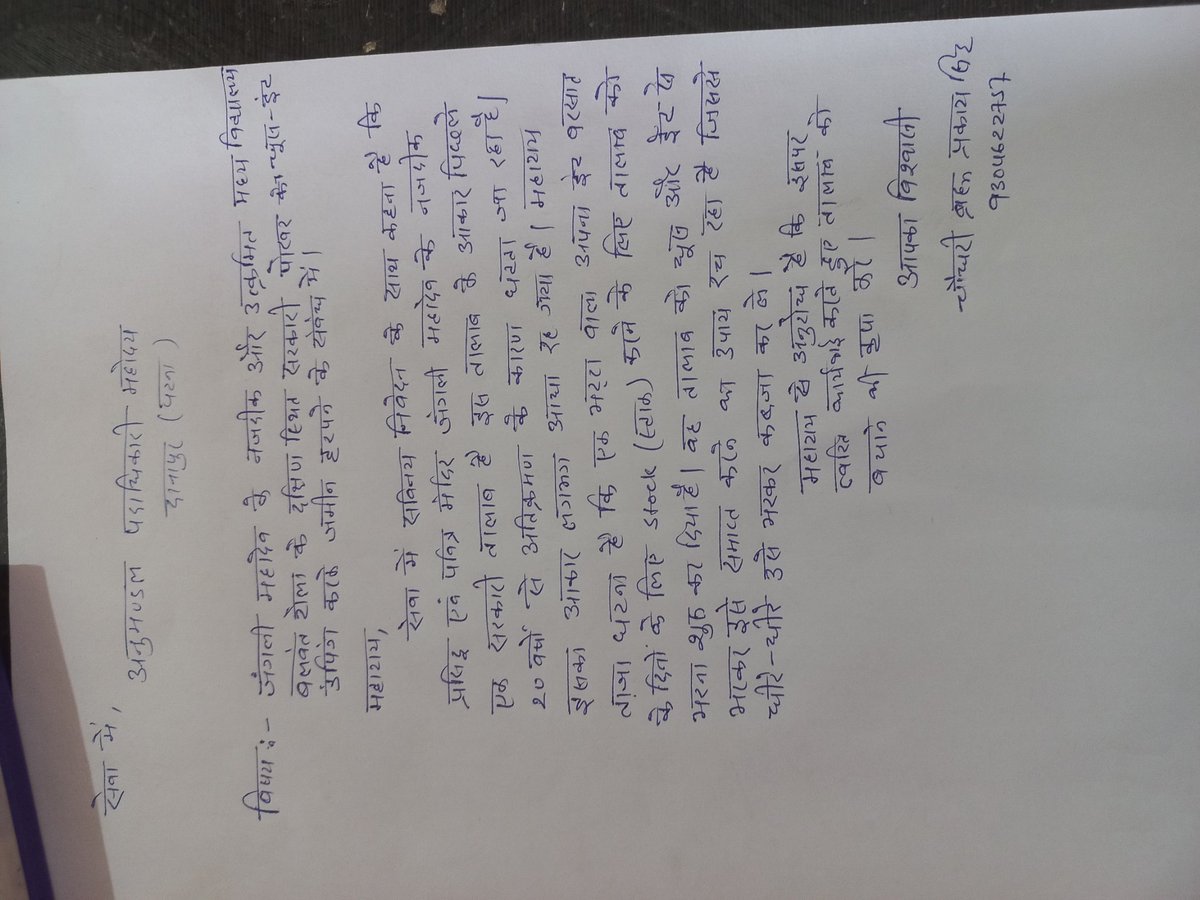 सेवा में,
अनुमण्डल पदाधिकारी महोदय
दानापुर (पटना)
विषय :- जंगली महादेव के नजदीक और उत्क्रमित मध्य विद्यालय
बलवंत टोला के दक्षिण स्थित सरकारी पोखर को धूल-ईंट
डंपिंग करके जमीन हड़पने के संबंध में।
महाशय,
सेवा में सविनय निवेदन के साथ कहना है कि
प्रसिद्ध एवं पवित्र मंदिर जंगली महादेव के नजदीक
एक सरकारी तालाब है इस तालाब के आकार पिछले
20 वर्षों से अतिक्रमण के कारण घटता जा रहा है।
इसका आकार लगभग आधा रह गया है। महाशय
ताजा घटना है कि एक भट्टा वाला अपना ईंट बरसात
के दिनों के लिए stock (स्टाक) करने के लिए तालाब को
भरना शुरू कर दिया है। वह तालाब को धूल और ईंट से
भरकर इसे समाप्त करने का उपाय रच रहा है जिससे
धीरे-धीरे उसे भरकर कब्जा कर ले।
महाशय से अनुरोध है कि इसपर
त्वरित कार्यवाई करते हुए तालाब को
बचाने की कृपा करें।
आपका विश्वासी
चौधरी ब्रह्म प्रकाश सिंह
9304622757